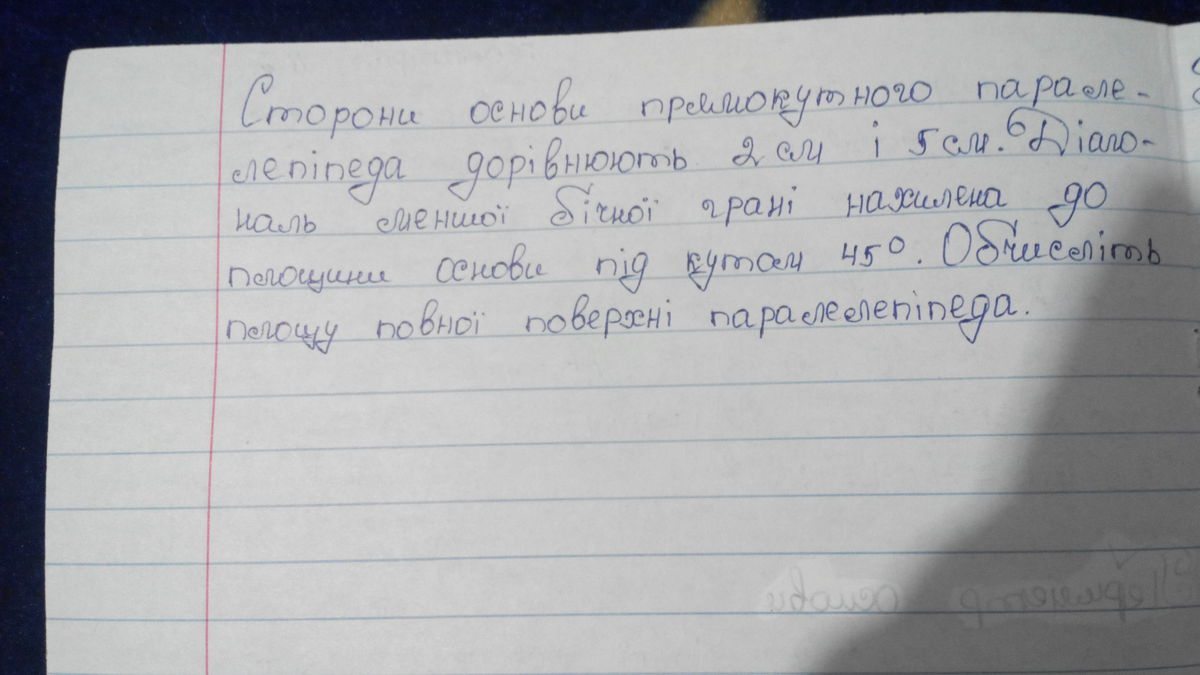 Сторони основи прямокутного парале-
лепіпеда дорівнюють 2 см і 5 см. Діаго-
наль меншої бічної грані нахилена до
площини основи під кутом 45°. Обчисліть
площу повної поверхні паралелепіпеда.
Периметр основи